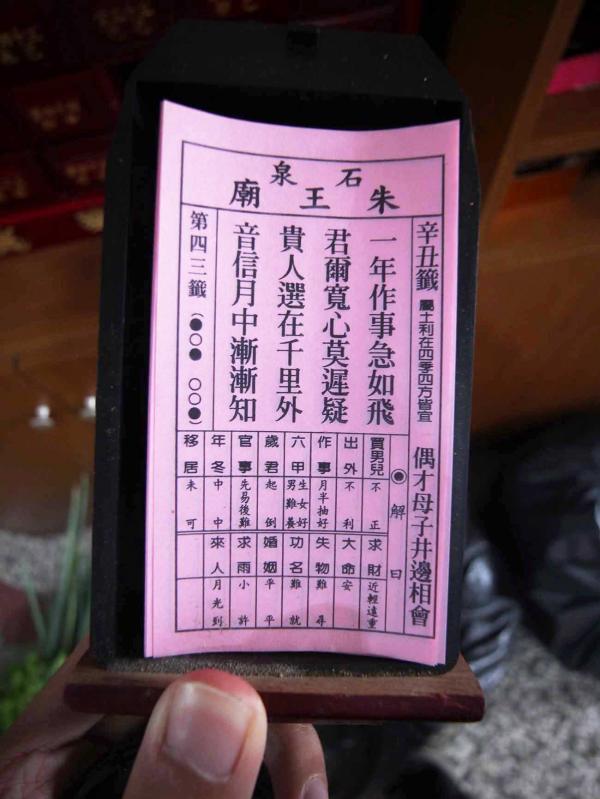 石泉
朱王廟
辛丑籤 屬土利在四季四方皆宜
偶才母子井邊相會
一年作事急如飛
君爾寬心莫遲疑
貴人選在千里外
音信月中漸漸知
第四三籤（●○● ○○●）
◉解曰
買男兒 不正
出外 不利
作事 月半抽好
六甲 生女好男難養
歲君 起倒
官事 先易後難
年冬 中中
移居 未可
求財 近輕遠重
大命 安
失物 難尋
功名 難就
婚姻 平平
求雨 小許
來人 月光到